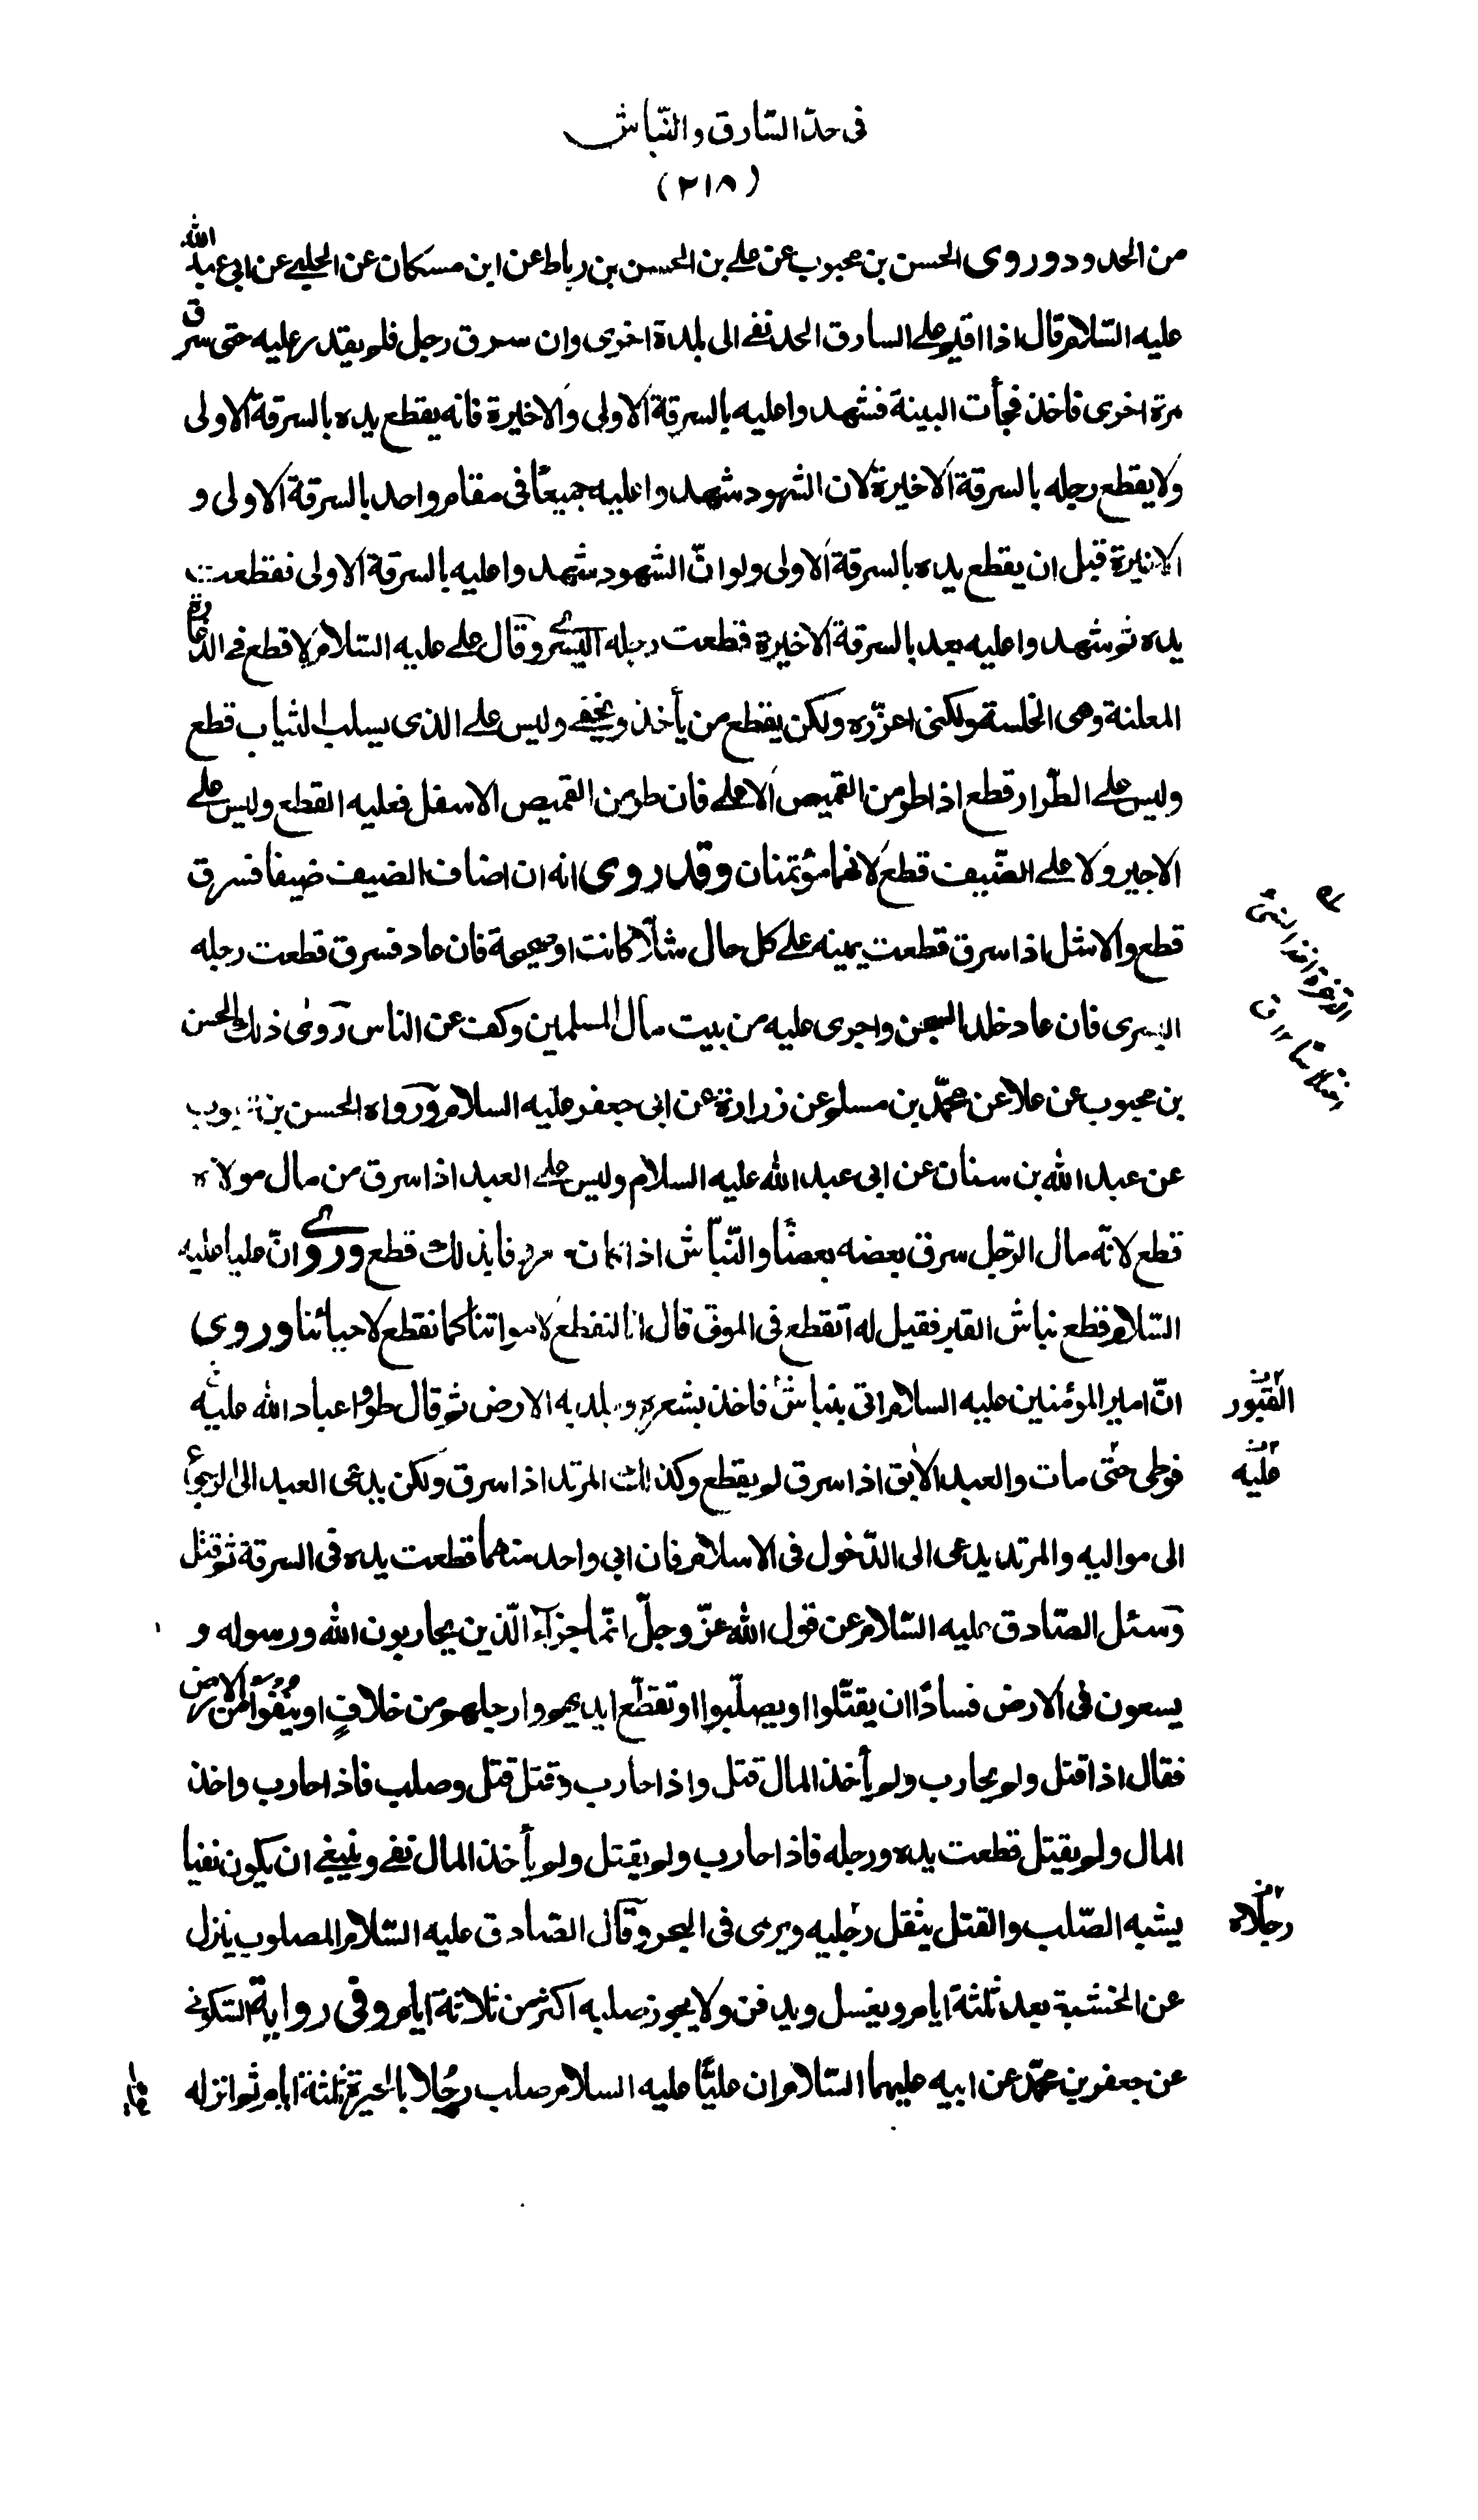 فى حدّ السّارق والنّباش
(٢١٨)
من الحدود وروى الحسن بن محبوب عن على بن الحسن بن رباط عن ابن مسكان عن الحلبى عن ابى عبد الله
عليه السّلام قال اذا اقيم على السارق الحد نفى الى بلدة اخرى وان سرق رجل فلم يقدر عليه حتى سرق
مرة اخرى فاخذ فجأت البينة فشهدوا عليه بالسرقة الاولى والاخيرة فانه يقطع يده بالسرقة الاولى
ولا يقطع رجله بالسرقة الاخيرة لان الشهود شهدوا عليه جميعًا فى مقام واحد بالسرقة الاولى و
الاخيرة قبل ان يقطع يده بالسرقة الاولى ولو انّ الشهود شهدوا عليه بالسرقة الاولى فقطعت
يده ثم شهدوا عليه بعد بالسرقة الاخيرة قطعت رجله اليسرى وقال على عليه السّلام لا قطع فى الدغارة
المعلنة وهى الخلسة ولكنى اعزّره ولكن يقطع من يأخذ ويخفى وليس على الذى يسلب الثياب قطع
وليس على الطّرار قطع اذا طر من القميص الاعلى فان طر من القميص الاسفل فعليه القطع وليس على
الاجير ولا على الضّيف قطع لانهما مؤتمنان وقد روى انه ان اضاف الضيف ضيفا فسرق
قطع والاشل اذا سرق قطعت يمينه على كل حال شلّاء كانت او صحيحة فان عاد فسرق قطعت رجله
اليسرى فان عاد خلد السجن واجرى عليه من بيت مال المسلمين وكف عن الناس روى ذلك الحسن
بن محبوب عن علا عن محمّد بن مسلم عن زرارة عن ابى جعفر عليه السلام ورواه الحسن بن محبوب
عن عبد الله بن سنان عن ابى عبد الله عليه السلام وليس على العبد اذا سرق من مال مولاه
قطع لانّه مال الرّجل سرق بعضه بعضًا والنّبّاش اذا كان معروفا بذلك قطع وروى انّ عليا عليه
السّلام قطع نباش القبر فقيل له أتقطع فى الموتى قال انا لنقطع لامواتنا كما نقطع لاحيائنا وروى
انّ امير المؤمنين عليه السلام اتى بنباش فاخذ بشعره وجلد به الارض ثم قال طؤا عباد الله عليه
القبور
فوطى حتّى مات والعبد الابق اذا سرق لم يقطع وكذلك المرتد اذا سرق ولكن يدعى العبد الى الرجوع
عليه
الى مواليه والمرتد يدعى الى الدّخول فى الاسلام فان ابى واحد منهما قطعت يده فى السرقة ثم قتل
وسئل الصّادق عليه السّلام عن قول الله عزّ وجلّ انّما جزآء الّذين يحاربون الله ورسوله و
يسعون فى الارض فسادًا ان يقتّلوا او يصلّبوا او تقطّع ايديهم وارجلهم من خلافٍ او ينفوا من الارض
فقال اذا قتل ولم يحارب ولم يأخذ المال قتل واذا حارب وقتل قتل وصلب فاذا حارب واخذ
المال ولم يقتل قطعت يده ورجله فاذا حارب ولم يقتل ولم يأخذ المال نفى وينبغى ان يكون نفيا
يشبه الصّلب والقتل يثقل رجليه ويرمى فى البحر وقال الصّادق عليه السّلام المصلوب ينزل
رجلاه
عن الخشبة بعد ثلثة ايام ويغسل ويدفن ولا يجوز صلبه اكثر من ثلاثة ايام وفى رواية السّكونى
عن جعفر بن محمّد عن ابيه عليهما السّلام ان عليًّا عليه السلام صلب رجُلا بالحيرة ثلثة ايام ثم انزله